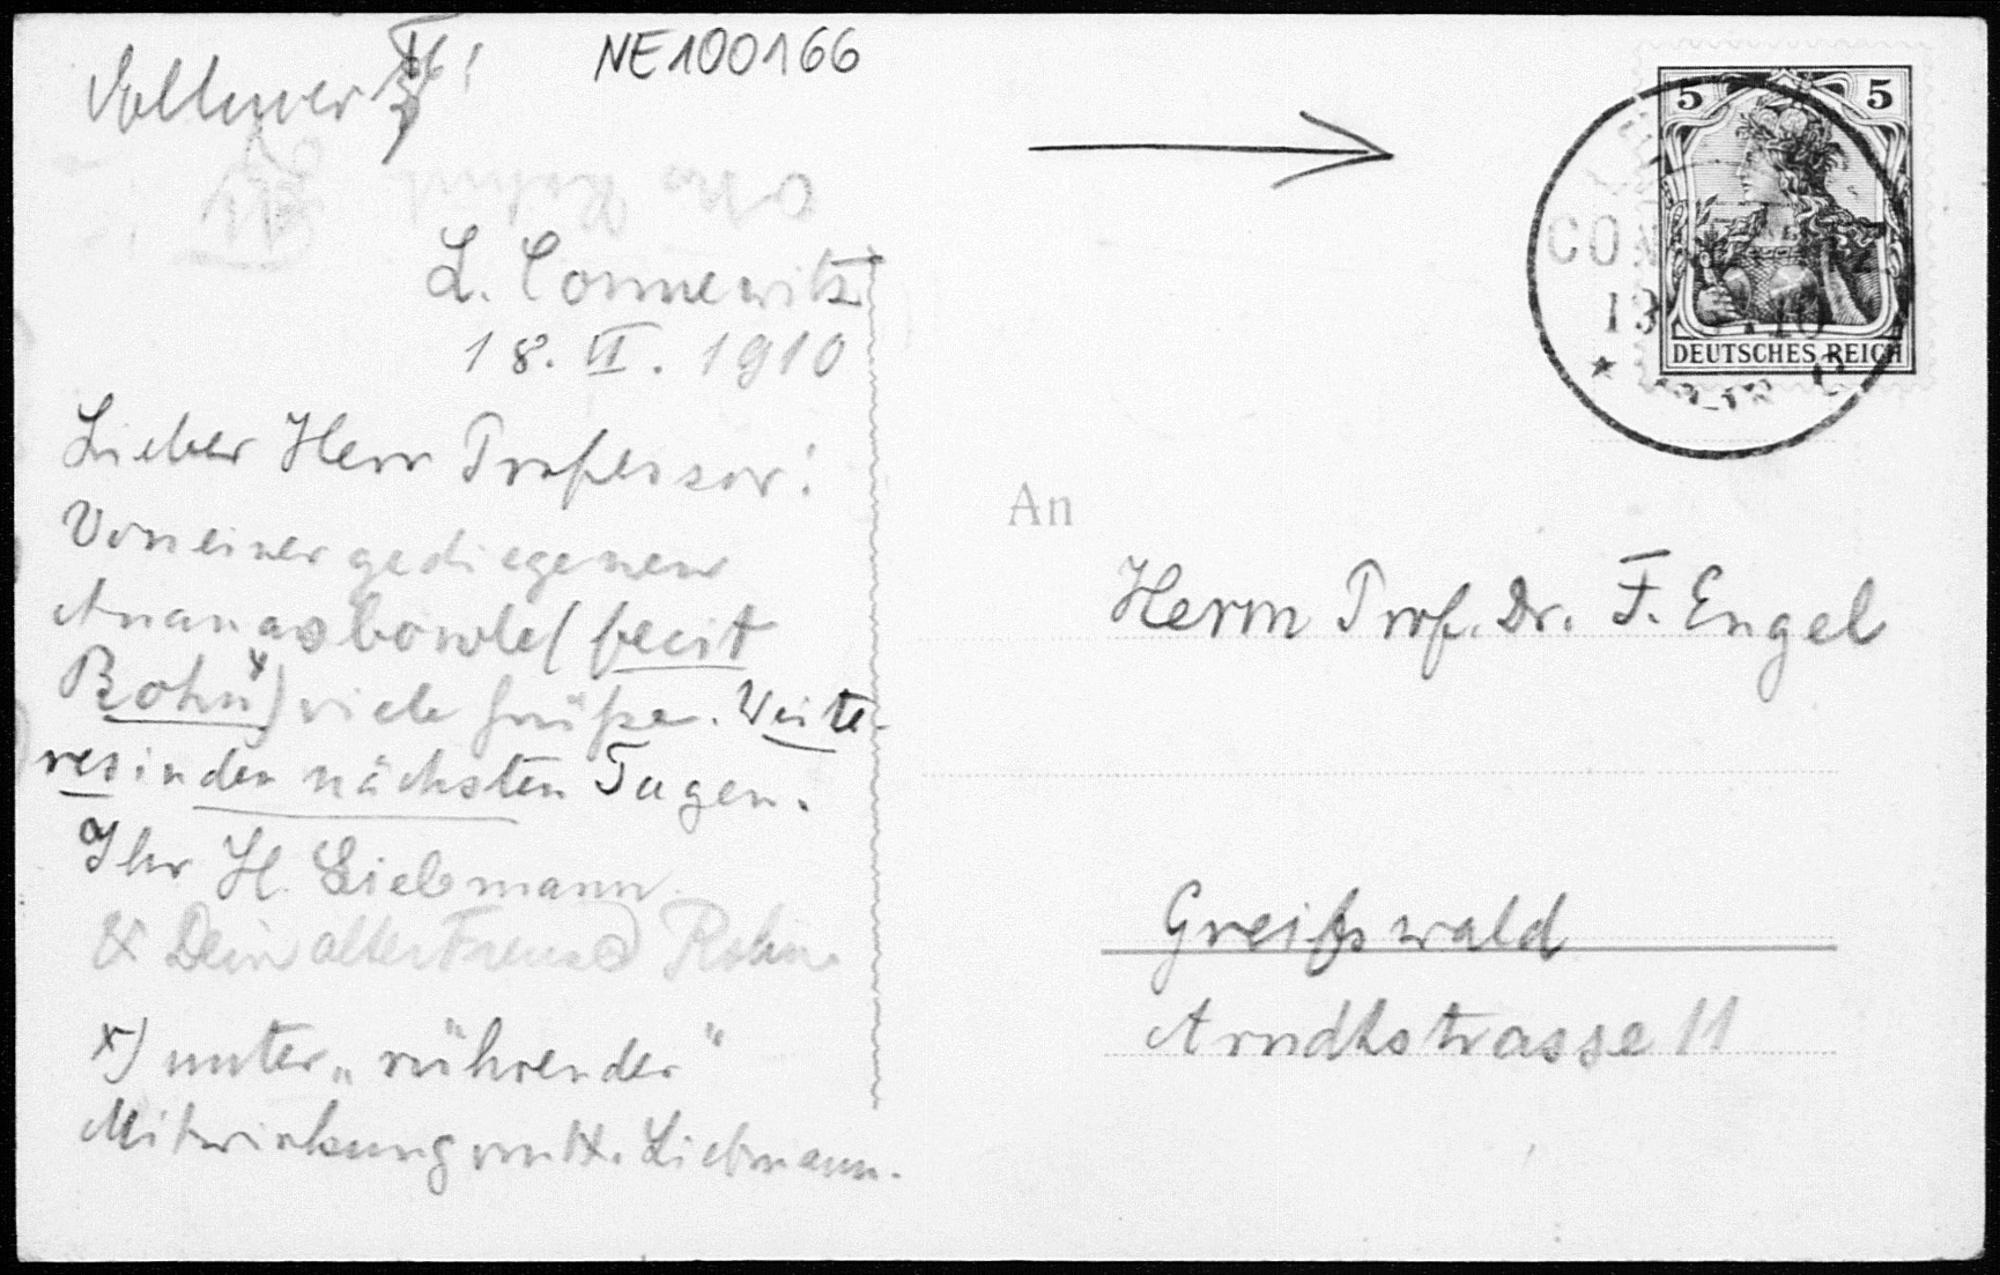 Vollmer
NE100166
L. Connewitz
18. VI. 1910
Lieber Herr Professor!
Von einer gediegenen
Ananasbowle (fecit
Rohn x) viele Grüße. Weite-
res in den nächsten Tagen.
Ihr H. Liebmann.
& Dein alter Freund Rohn
x) unter „rührender"
Mitwirkung von H. Liebmann.
5 5
DEUTSCHES REICH
An
Herrn Prof. Dr. F. Engel
Greifswald
Arndtstrasse 11